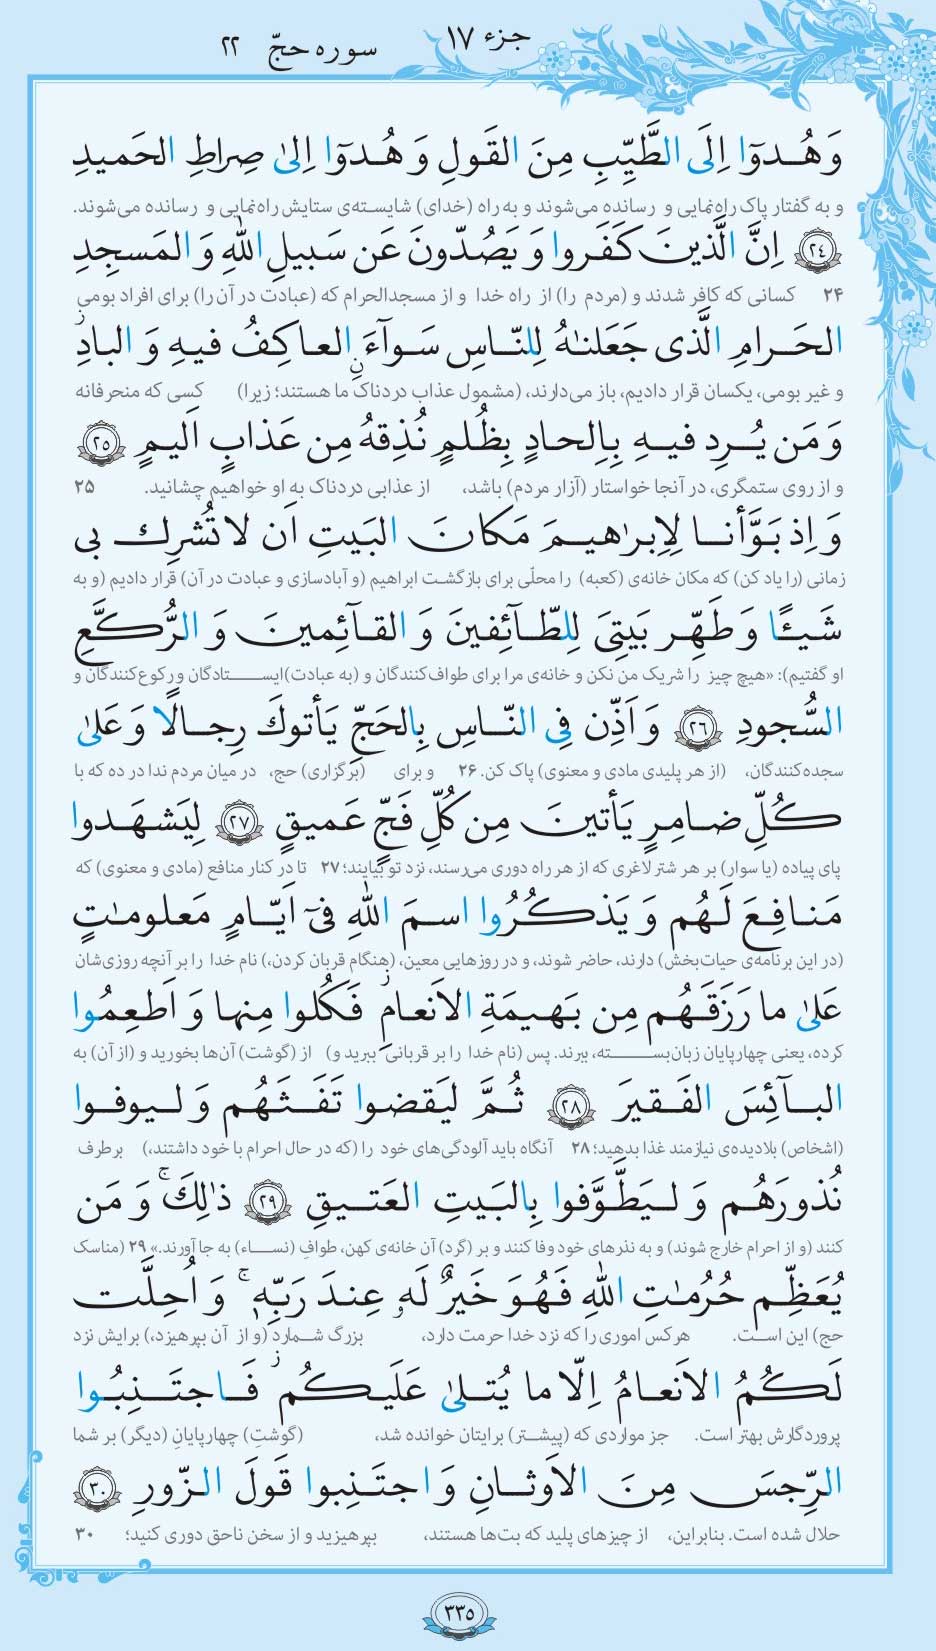 جزء ۱۷ سوره حجّ ۲۲
وَ هُـدوٓا اِلَی الطَّیِّبِ مِنَ القَولِ وَ هُـدوٓا اِلیٰ صِراطِ الحَمیدِ
و به گفتار پاک راه‌نمایی و رسانده می‌شوند و به راه (خدای) شایسته‌ی ستایش راه‌نمایی و رسانده می‌شوند.
﴿۲۴﴾ اِنَّ الَّذینَ کَفَروا وَ یَصُدّونَ عَن سَبیلِ اللهِ وَ المَسجِدِ
۲۴ کسانی که کافر شدند و (مردم را) از راه خدا و از مسجدالحرام که (عبادت در آن را) برای افراد بومی
الحَـرامِ الَّذی جَعَلنـٰهُ لِلنّاسِ سَـوآءَنِ العاکِفُ فیهِ وَ البادِ ز
و غیر بومی، یکسان قرار دادیم، باز می‌دارند، (مشمول عذاب دردناک ما هستند؛ زیرا) کسی که منحرفانه
وَ مَن یُـرِد فیـهِ بِاِلحادٍ بِظُلمٍ نُذِقهُ مِن عَذابٍ اَلیمٍ ﴿۲۵﴾
و از روی ستمگری، در آنجا خواستار (آزار مردم) باشد، از عذابی دردناک به او خواهیم چشانید. ۲۵
وَ اِذ بَوَّأنـا لِاِبرٰهیـمَ مَکانَ البَیتِ اَن لا تُشرِك بی
زمانی (را یاد کن) که مکان خانه‌ی (کعبه) را محلّی برای بازگشت ابراهیم (و آبادسازی و عبادت در آن) قرار دادیم (و به
شَیـًٔا وَ طَهِّـر بَیتِیَ لِلطّـآئِفینَ وَ القـآئِمینَ وَ الرُّکَّعِ
او گفتیم): «هیچ چیز را شریک من نکن و خانه‌ی مرا برای طواف‌کنندگان و (به عبادت)ایستادگان و رکوع‌کنندگان و
السُّجودِ ﴿۲۶﴾ وَ اَذِّن فِی النّـاسِ بِالحَجِّ یَأتوكَ رِجـالًا وَ عَلیٰ
سجده‌کنندگان، (از هر پلیدی مادی و معنوی) پاک کن. ۲۶ و برای (برگزاری) حج، در میان مردم ندا در ده که با
کُلِّ ضـامِرٍ یَأتینَ مِن کُلِّ فَجٍّ عَمیقٍ ﴿۲۷﴾ لِیَشهَـدوا
پای پیاده (یا سوار) بر هر شتر لاغری که از هر راه دوری می‌رسند، نزد تو بیایند؛ ۲۷ تا در کنار منافع (مادی و معنوی) که
مَنـافِـعَ لَـهُم وَ یَذکُـرُوا اسـمَ اللهِ فیٓ اَیّـامٍ مَعلومـٰتٍ
(در این برنامه‌ی حیات‌بخش) دارند، حاضر شوند، و در روزهایی معین، (هنگام قربان کردن،) نام خدا را بر آنچه روزی‌شان
عَلیٰ ما رَزَقَـهُم مِن بَـهیمَةِ الاَنعـامِ ز فَـکُلوا مِنها وَ اَطعِمُوا
کرده، یعنی چهارپایان زبان‌بسته، ببرند. پس (نام خدا را بر قربانی ببرید و) از (گوشت) آن‌ها بخورید و (از آن) به
البـآئِسَ الفَـقیرَ ﴿۲۸﴾ ثُـمَّ لیَقضـوا تَفَـثَهُم وَ لـیوفـوا
(اشخاص) بلادیده‌ی نیازمند غذا بدهید؛ ۲۸ آنگاه باید آلودگی‌های خود را (که در حال احرام با خود داشتند،) برطرف
نُذورَهُـم وَ لـیَطَّـوَّفوا بِالبَـیتِ العَتـیقِ ﴿۲۹﴾ ذٰلِكَ ج وَ مَن
کنند (و از احرام خارج شوند) و به نذرهای خود وفا کنند و بر (گرد) آن خانه‌ی کهن، طواف (نساء) به جا آورند.» ۲۹ (مناسک
یُعَظِّـم حُرُمـٰتِ اللهِ فَـهُوَ خَیرٌ لَهٗ عِندَ رَبِّهٖ ج وَ اُحِلَّت
حج) این است. هرکس اموری را که نزد خدا حرمت دارد، بزرگ شمارد (و از آن بپرهیزد،) برایش نزد
لَـکُمُ الاَنعـامُ اِلّا ما یُتـلیٰ عَلَیـکُم ز فَـاجتَـنِبُوا
پروردگارش بهتر است. جز مواردی که (پیشتر) برایتان خوانده شد، (گوشتِ) چهارپایانِ (دیگر) بر شما
الرِّجسَ مِنَ الاَوثـانِ وَ اجتَـنِبوا قَولَ الزّورِ ﴿۳۰﴾
حلال شده است. بنابراین، از چیزهای پلید که بت‌ها هستند، بپرهیزید و از سخن ناحق دوری کنید؛ ۳۰
۳۳۵